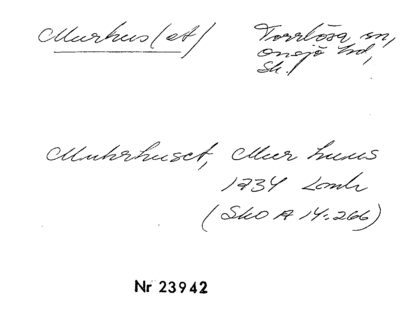 Murhus(et) Torrlösa sn,
Onsjö hd,
Sk.
Muhrhuset, Muur huus
1734 Lomh
(SkO A 14:266)
Nr 23942